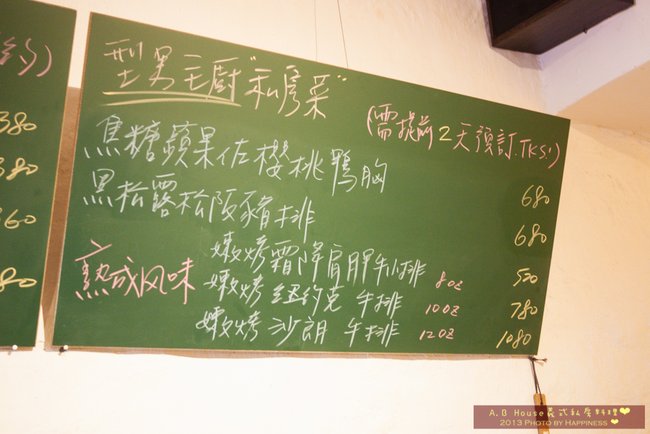 約)
380
380
360
80
型男主廚"私房菜"
(需提前2天預訂.TKS!)
焦糖蘋果佐櫻桃鴨胸 680
黑松露松阪豬排 680
熟成风味
嫩烤霜降肩胛牛小排 8oz 520
嫩烤 紐約克 牛排 10oz 780
嫩烤 沙朗 牛排 12oz 1080
A.B House義式私房料理
2013 PHOTO BY HAPPINESS